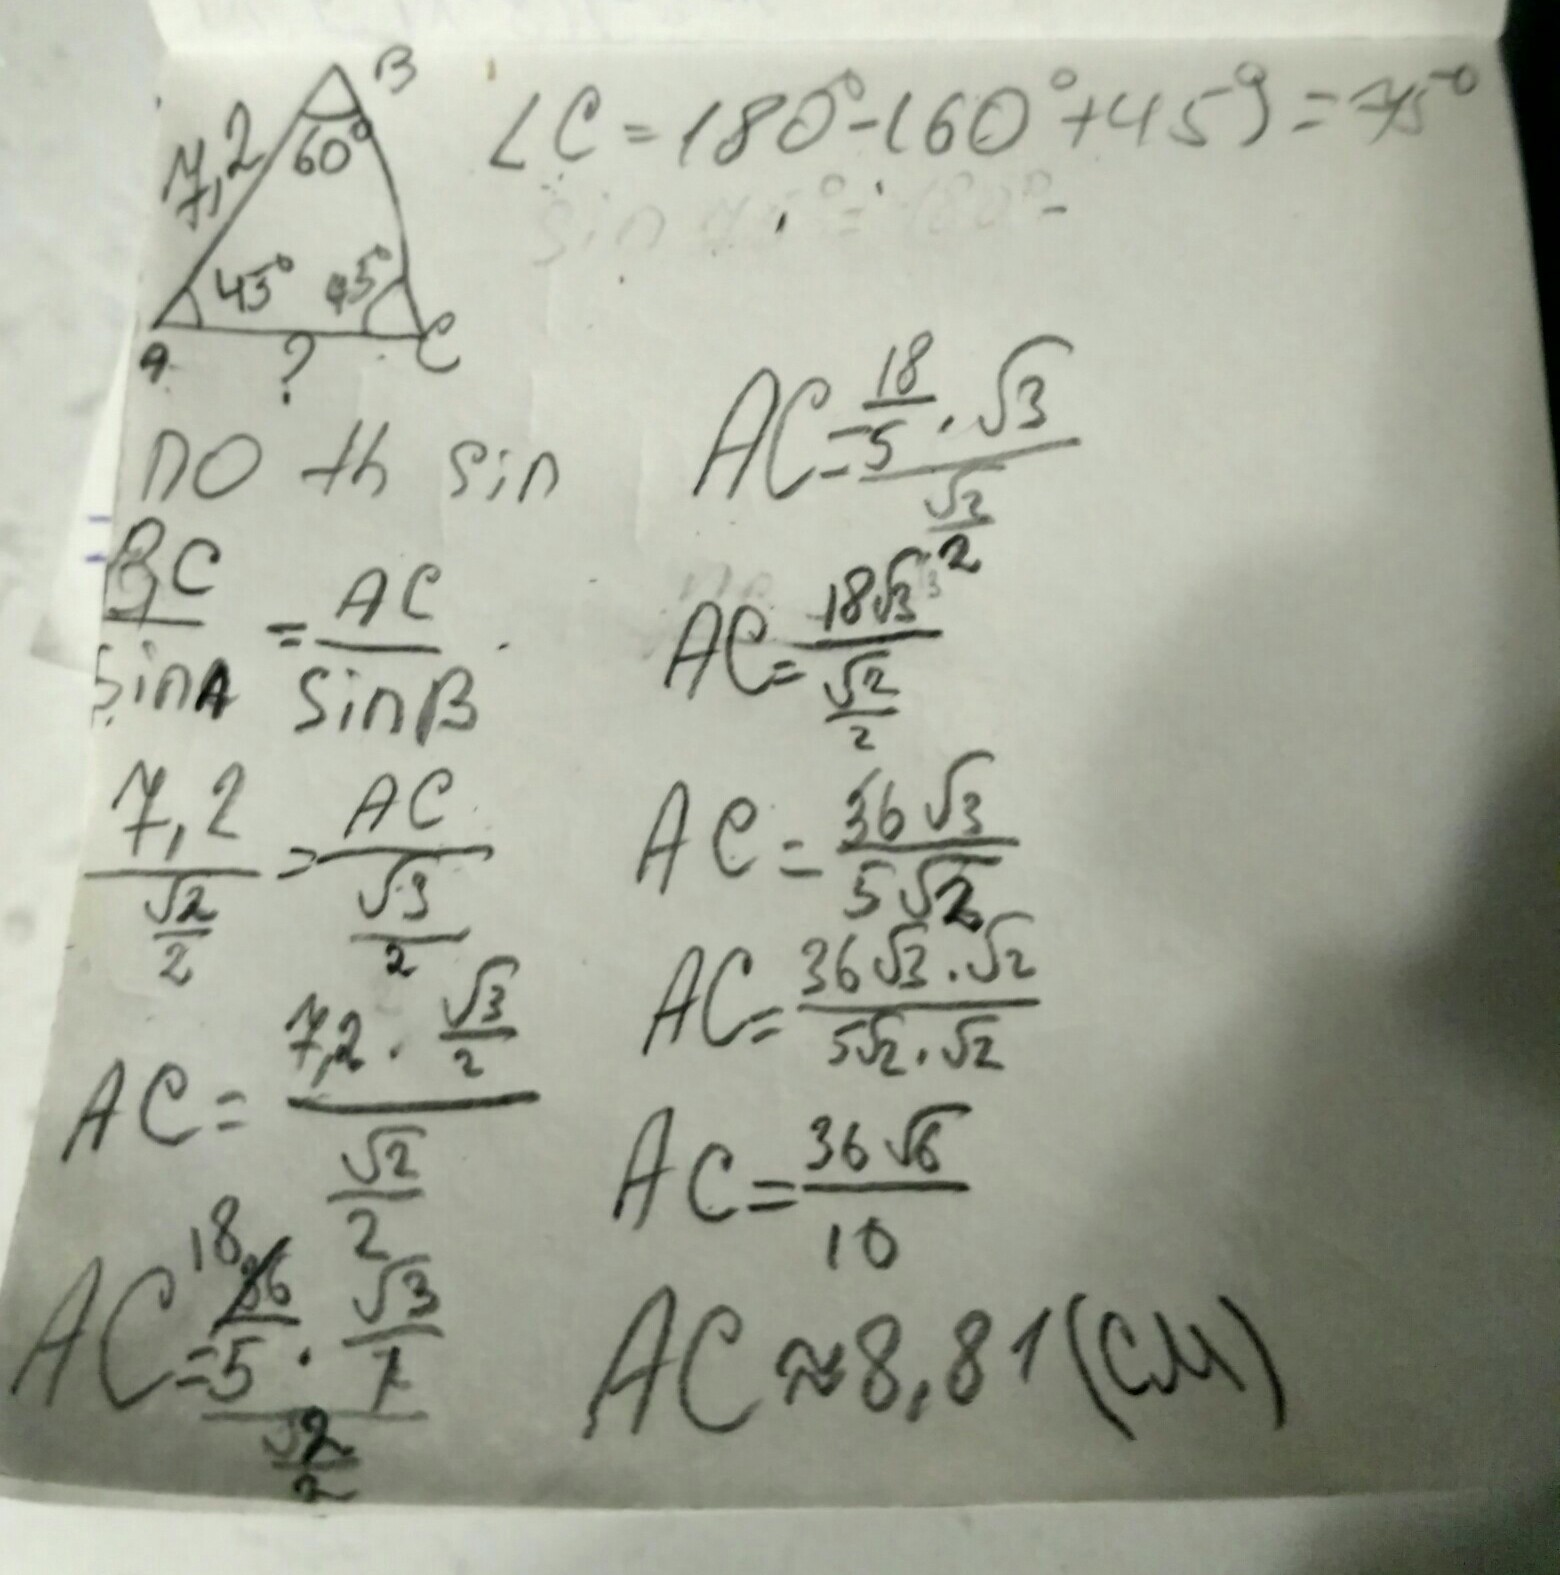 B
7,2
60°
∠C = 180° - (60° + 45°) = 75°
sin 75° = 180° -
45°
A
?
C
по th sin
BC/sinA = AC/sinB
7,2/(√2/2) = AC/(√3/2)
AC = (7,2 · √3/2)/(√2/2)
18
AC = (36/5 · √3/1)/(√2/2)
AC = (18/5 · √3)/(√2/2)
AC = 18√3/(√2/2)
AC = 36√3/5√2
AC = 36√3 · √2/5√2 · √2
AC = 36√6/10
AC ≈ 8,81 (см)